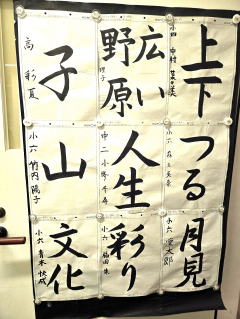 上下
小四 中村 菜々美
つる
小六
月見
小六
広い
野原
理子
人生
中二 小野 千尋
彩り
小六 脇田 朱
子
高 彩夏
山
小六 竹内 陽子
文化
小六 青木 快成